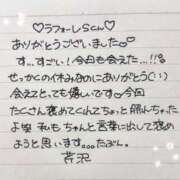 ♡ラフォーレSくん♡
ありがとうございました
す...すごい!今日も会えた...!!
せっかくの休みなのにありがとう(:)
会えてとっても嬉しいです
たくさん褒めてくれてちょっと照れちゃった
よ 私もちゃんと言葉に出して褒め
ようと思います。...たぶん。
芹沢